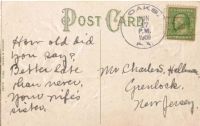 POST CARD
OAKS,
P.M.
How old did
you say?
Better late
than never,
your wife's
sister.
Mr Charles
Grenlock,
New Jersey.